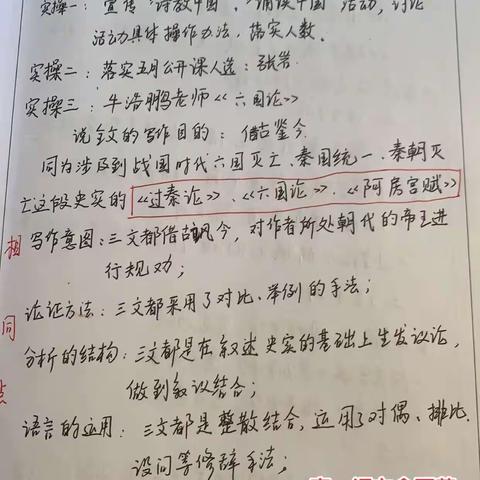 实操一：宣传"诗教中国"、"诵读中国"活动，讨论
活动具体操作办法，落实人数。
实操二：落实五月公开课人选：张岩
实操三：牛浩鹏老师《六国论》
说全文的写作目的：借古鉴今
同为涉及到战国时代六国灭亡、秦国统一、秦朝灭
亡这段史实的《过秦论》、《六国论》、《阿房宫赋》
相
写作意图：三文都借古讽今，对作者所处朝代的帝王进
行规劝；
同
论证方法：三文都采用了对比、举例的手法；
点
分析的结构：三文都是在叙述史实的基础上生发议论，
做到叙议结合；
语言的运用：三文都是整散结合，运用了对偶、排比、
设问等修辞手法；